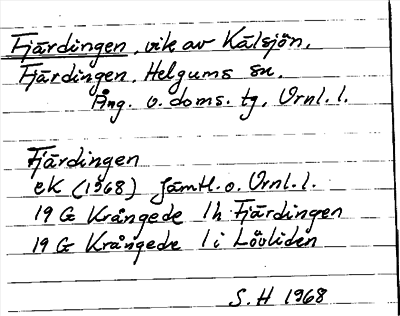 Fjärdingen, vik av Kälsjön,
Fjärdingen, Helgums sn.
Ång. v. doms. tg, Vrnl. l.
Fjärdingen
ek (1968) Jämtl. o. Vrnl. l.
19 G Krångede 1h Fjärdingen
19 G Krångede 1i Lövliden
S. H 1968